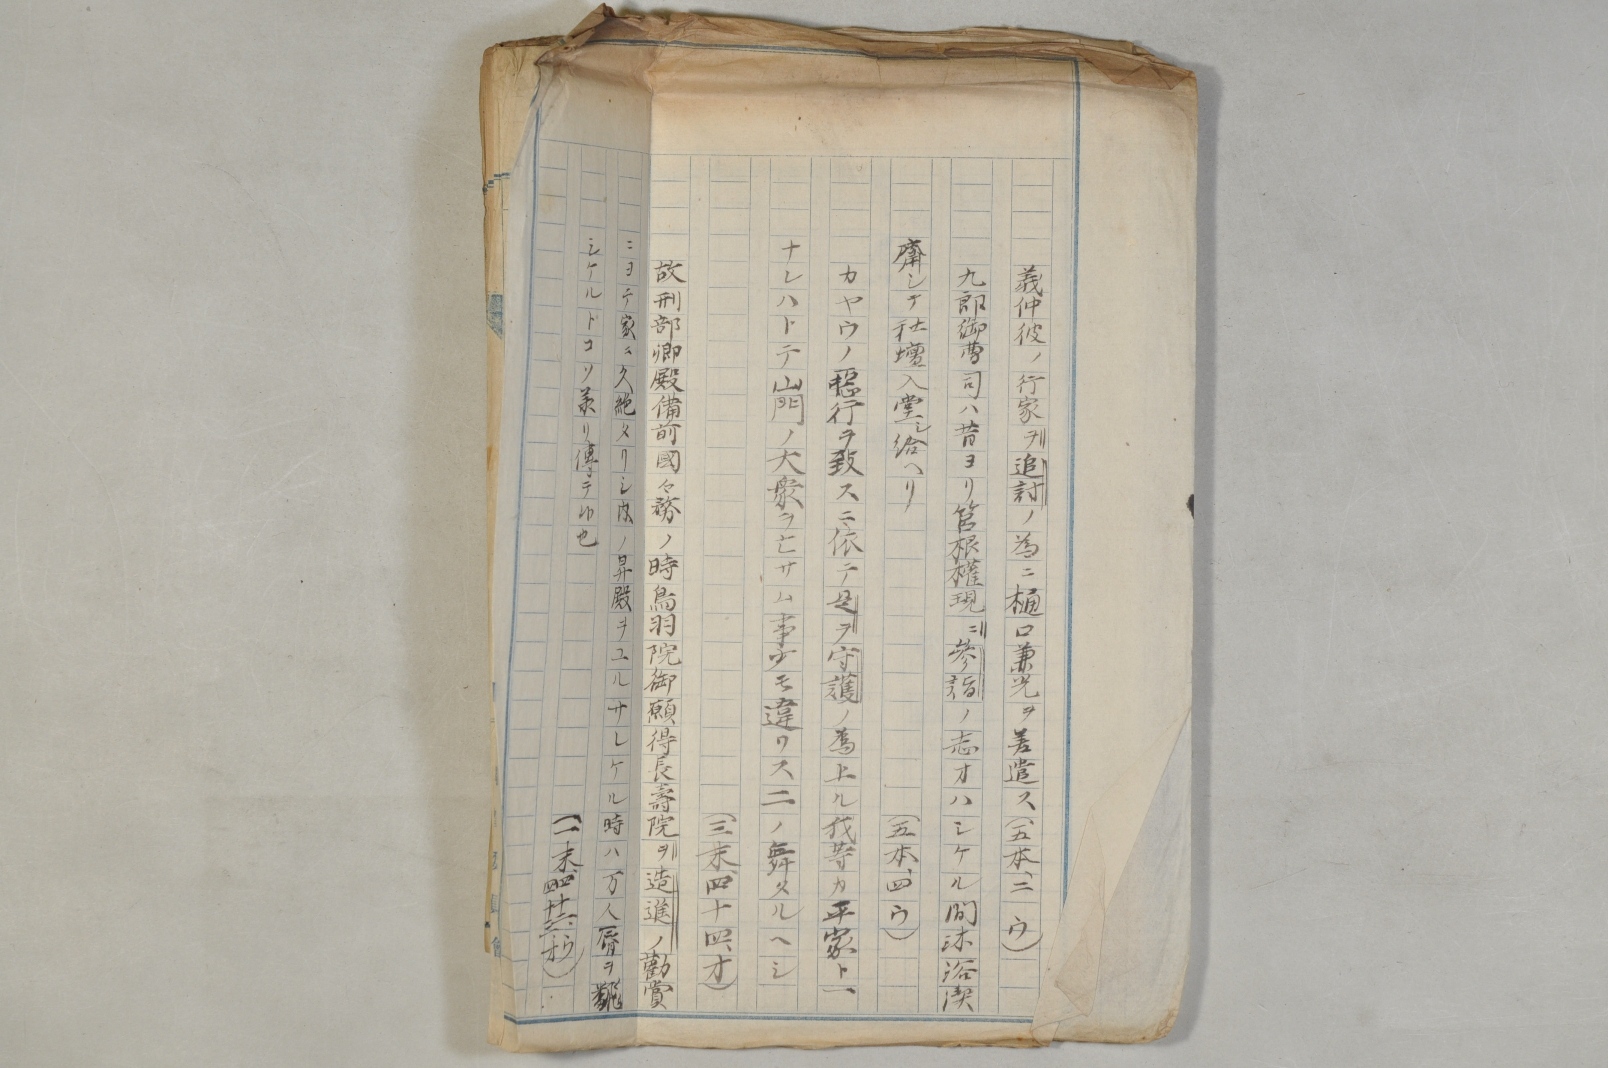 義仲彼ノ行家ヲ追討ノ為ニ樋口兼光ヲ差遣ス(五本、二ウ)
九郎御曹司ハ昔ヨリ筥根権現ニ参詣ノ志オハシケル間沐浴潔
齋シテ社壇入堂シ給ヘリ(五本、四ウ)
カヤウノ悪行ヲ致スニ依テ是ヲ守護ノ為上ル我等カ平家ト一
ナレハトテ山門ノ大衆ヲ亡サム事少モ違ワス二ノ舞タルヘシ
(三末、四十四、オ)
故刑部卿殿備前國々務ノ時鳥羽院御願得長壽院ヲ造進ノ勸賞
ニヨテ家ニ久絶タリシ内ノ昇殿ヲユルサレケル時ハ万人脣ヲ飜
シケルトコソ承リ傳テ也
(一末